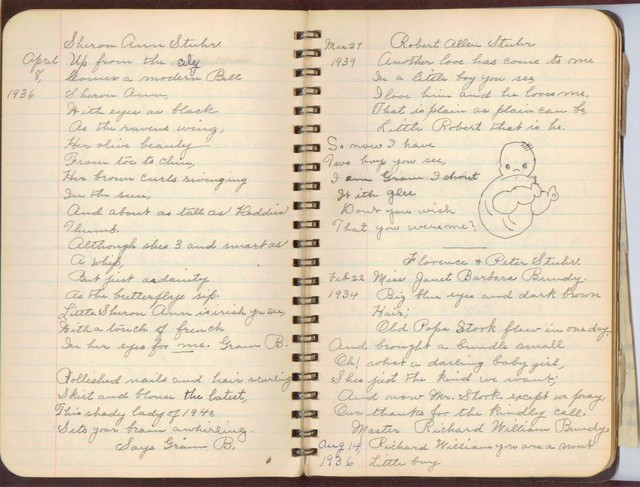 Sheron Ann Stuhr
April 8, 1936
Up from the city
Comes a modern Bell
Sheron Ann,
With eyes as black
As the ravens wing,
Her olive beauty
From toe to chin,
Her brown curls swinging
In the sun,
And about as tall as Daddies'
Thumb.
Although shes 3 and smart as
A whip,
But just as dainty
As the butterflys sip.
Little Sheron Ann is irish you see,
With a touch of french
In her eyes for me. Gram B.
Polleshed nails and hair acurling
Skirt and blouse the latest,
This shady lady of 1942
Sets your brain awhirling.
Says Gram B.
Mar 27
1939
Robert Allen Stuhr
Another love has come to me
In a little boy you see
I love him and he loves me,
That is plain as plain can be
Little Robert that is he.
So now I have
Two boys you see,
I am Gram I shout
With glee
Don't you wish
That you were me?
Florence & Peter Stuhr.
Feb 22
1934
Miss Janet Barbara Bundy.
Big blue eyes and dark brown
Hair;
Old Papa Stork flew in one day.
And brought a bundle small
Oh! what a darling baby girl,
Shes just the kind we want;
And now Mr. Stork except we pray
Our thanks for the kindly call.
Master Richard William Bundy.
Aug 14,
1936
Richard William you are a sweet
Little boy